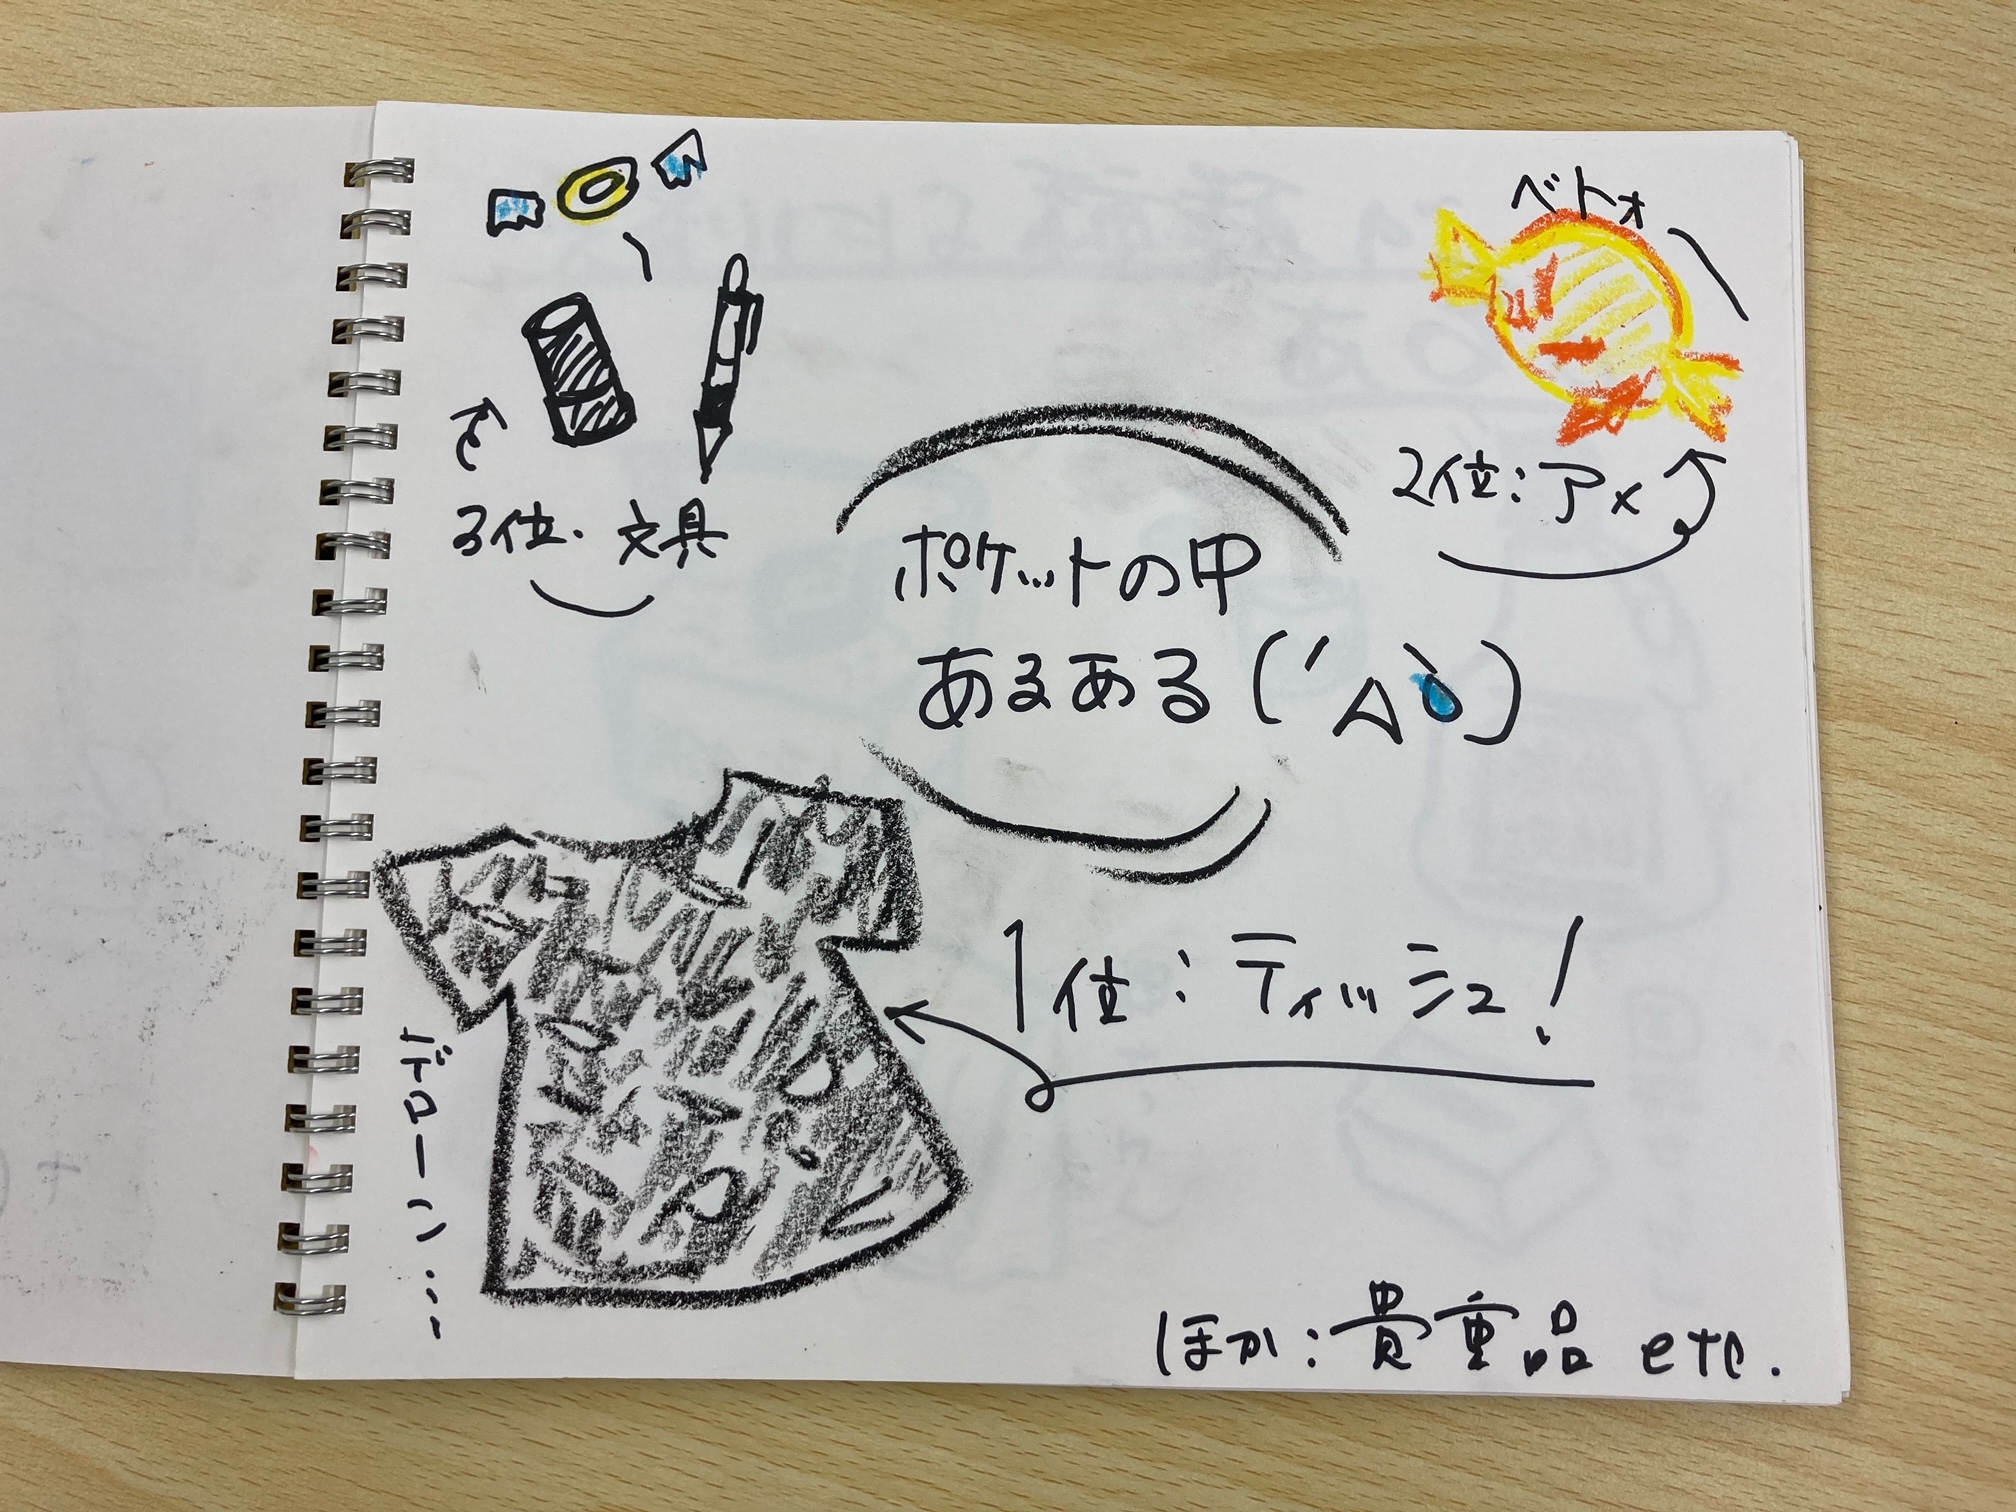 ベトォ
2位:アメ
3位:文具
ポケットの中
あるある(´Д`)
1位:ティッシュ!
ボローハ…
ほか:貴重品 etc.